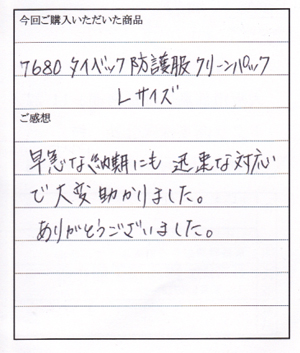 今回ご購入いただいた商品
7680 タイベック 防護服 クリーンパック
Lサイズ
ご感想
早急な納期にも 迅速な対応
で大変助かりました。
ありがとうございました。